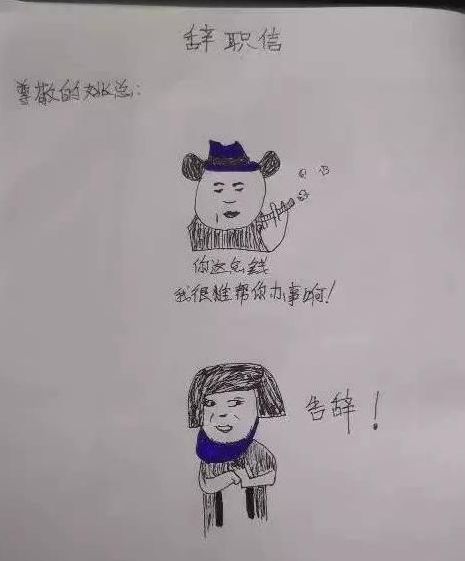 辞职信
尊敬的刘总：
你这点钱
我很难帮你办事啊！
告辞！